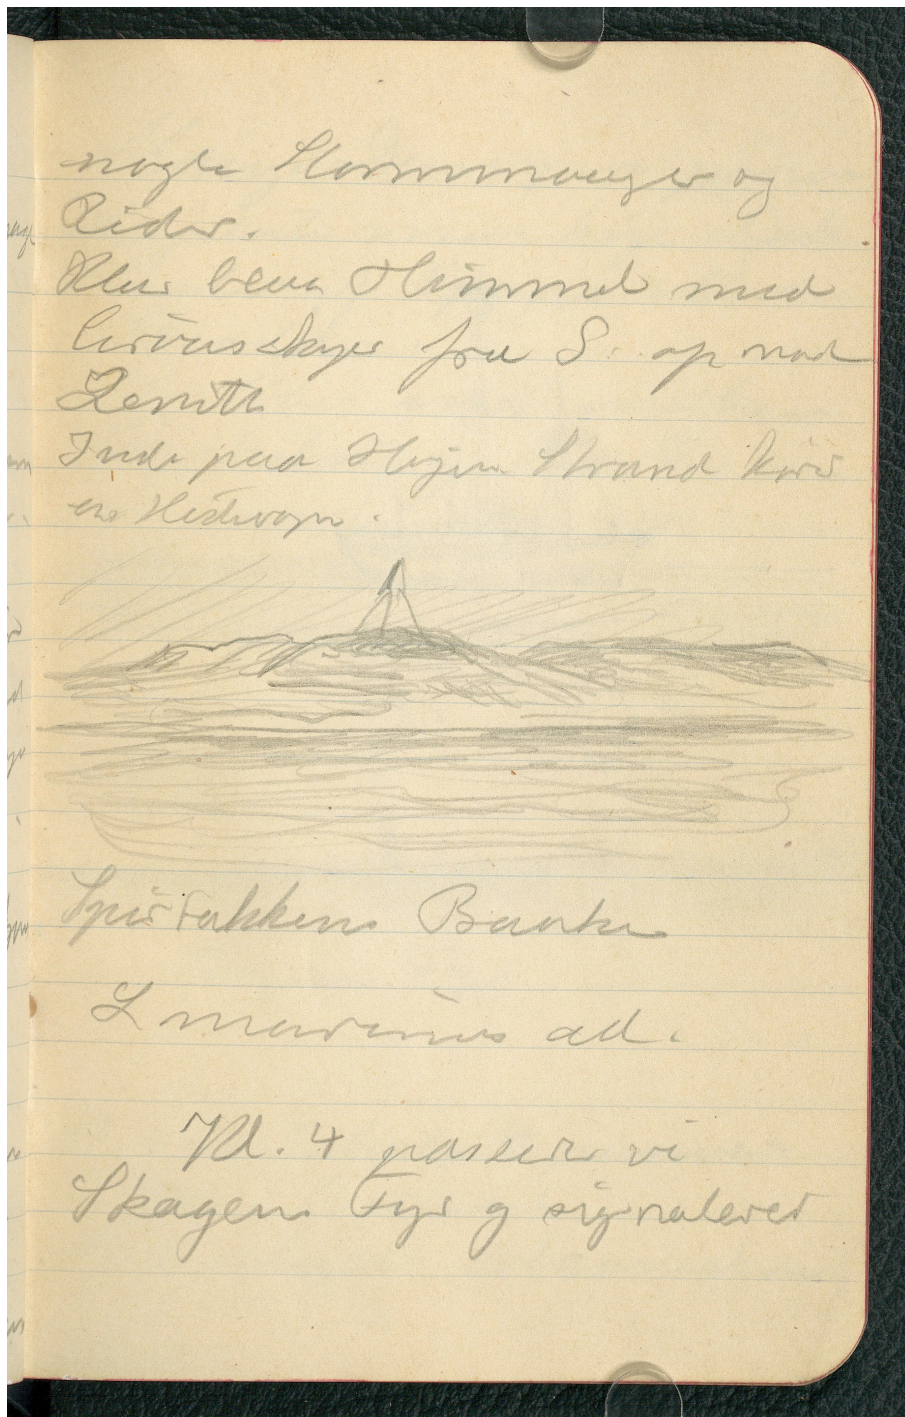 nogle Stormmaager og
Rider.
Klar blaa Himmel med
Cirrusskyer fra S. op mod
Zenith
Inde paa Højen Strand kører
en Hestevogn.
Spirbakkens Baake
L marinus ad.
Kl. 4 passerer vi
Skagens Fyr og signalerer